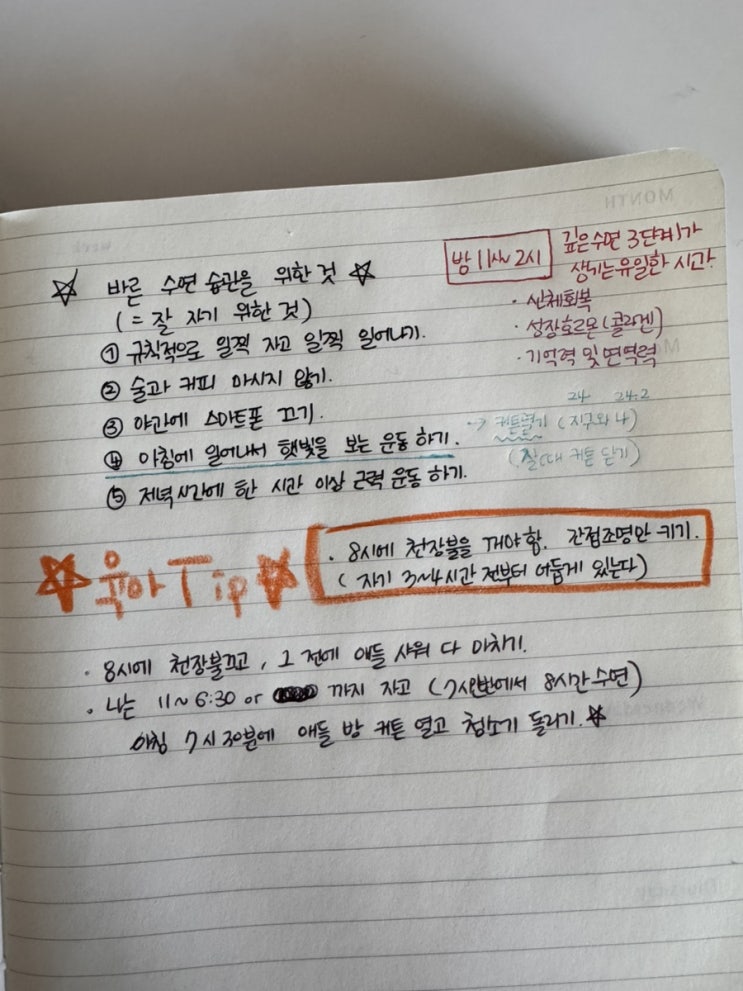 ☆ 바른 수면 습관을 위한 것 ☆
(= 잘 자기 위한 것)
① 규칙적으로 일찍 자고 일찍 일어나기.
② 술과 커피 마시지 않기.
③ 야간에 스마트폰 끄기.
④ 아침에 일어나서 햇빛을 보는 운동 하기.
⑤ 저녁시간에 한 시간 이상 근력 운동 하기.
밤 11시~2시
깊은수면 3단계가
생기는 유일한 시간.
· 신체회복
· 성장호르몬(콜라겐)
· 기억력 및 면역력
24 24.2
→ 커튼열기 (지구와 나)
(잘때 커튼 닫기)
☆ 육아 Tip ☆
· 8시에 천장불을 꺼야 함. 간접조명만 키기.
(자기 3~4시간 전부터 어둡게 있는다)
· 8시에 천장불끄고, 그 전에 애들 샤워 다 마치기.
· 나는 11~6:30 or 까지 자고 (7시반에서 8시간 수면)
아침 7시 30분에 애들 방 커튼 열고 청소기 돌리기. ☆
MONTH
week